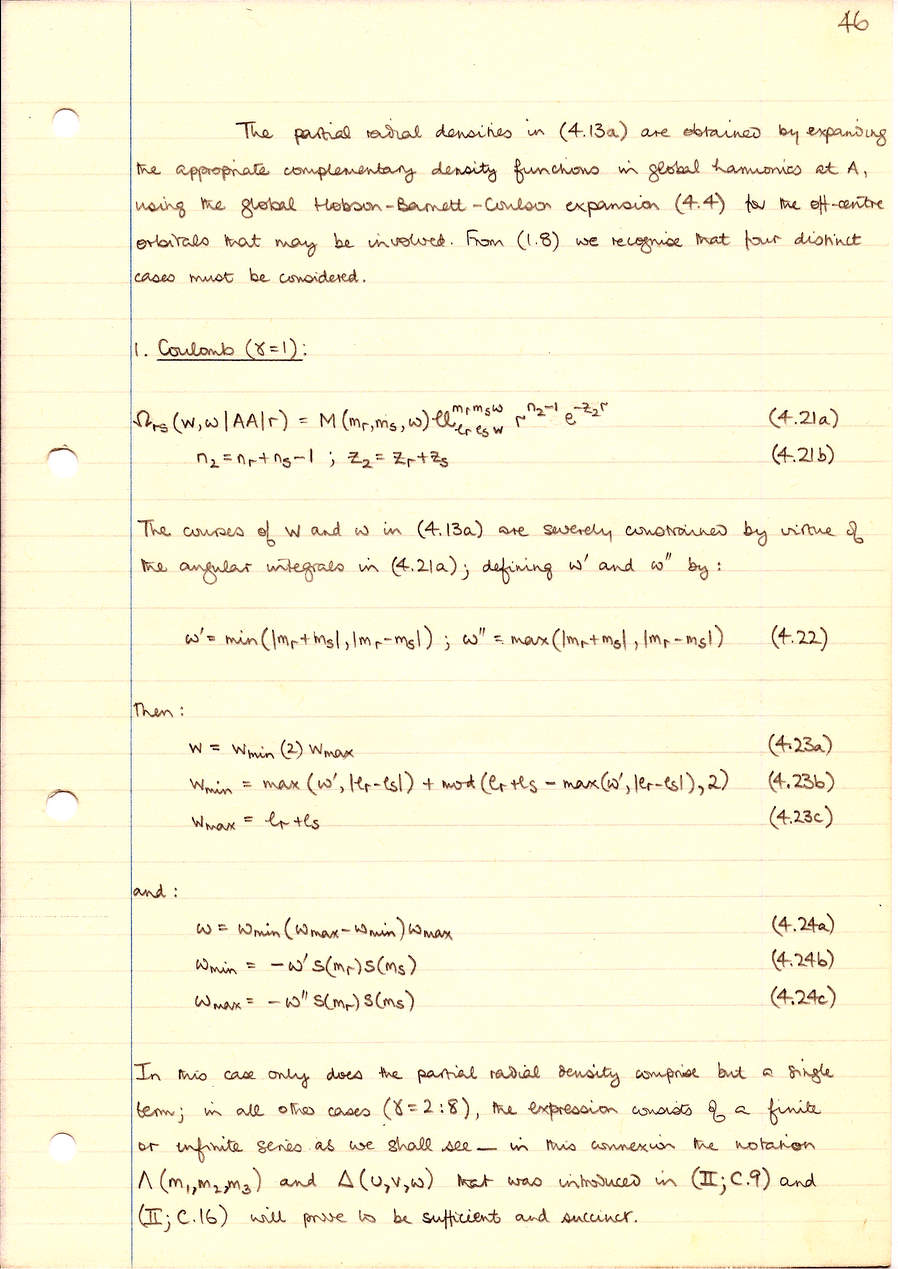 46
The partial radial densities in (4.13a) are obtained by expanding
the appropriate complementary density functions in global harmonics at A,
using the global Hobson-Barnett-Coulson expansion (4.4) for the off-centre
orbitals that may be involved. From (1.8) we recognise that four distinct
cases must be considered.
1. Coulomb (γ=1):
Ω_rs(w,ω|AA|r) = M(m_r,m_s,ω) 𝒰^{m_r m_s ω}_{ℓ_r ℓ_s w} r^{n_2-1} e^{-z_2 r} (4.21a)
n_2 = n_r+n_s-1 ; z_2 = z_r+z_s (4.21b)
The courses of w and ω in (4.13a) are severely constrained by virtue of
the angular integrals in (4.21a); defining ω' and ω" by:
ω' = min(|m_r+m_s|,|m_r-m_s|) ; ω" = max(|m_r+m_s|,|m_r-m_s|) (4.22)
Then:
w = w_min (2) w_max (4.23a)
w_min = max(ω',|ℓ_r-ℓ_s|) + mod(ℓ_r+ℓ_s - max(ω',|ℓ_r-ℓ_s|),2) (4.23b)
w_max = ℓ_r+ℓ_s (4.23c)
and:
ω = ω_min (ω_max-ω_min) ω_max (4.24a)
ω_min = -ω' S(m_r)S(m_s) (4.24b)
ω_max = -ω" S(m_r)S(m_s) (4.24c)
In this case only does the partial radial density comprise but a single
term; in all other cases (γ=2:8), the expression consists of a finite
or infinite series as we shall see — in this connexion the notation
Λ(m_1,m_2,m_3) and Δ(u,v,w) that was introduced in (II;C.9) and
(II;C.16) will prove to be sufficient and succinct.